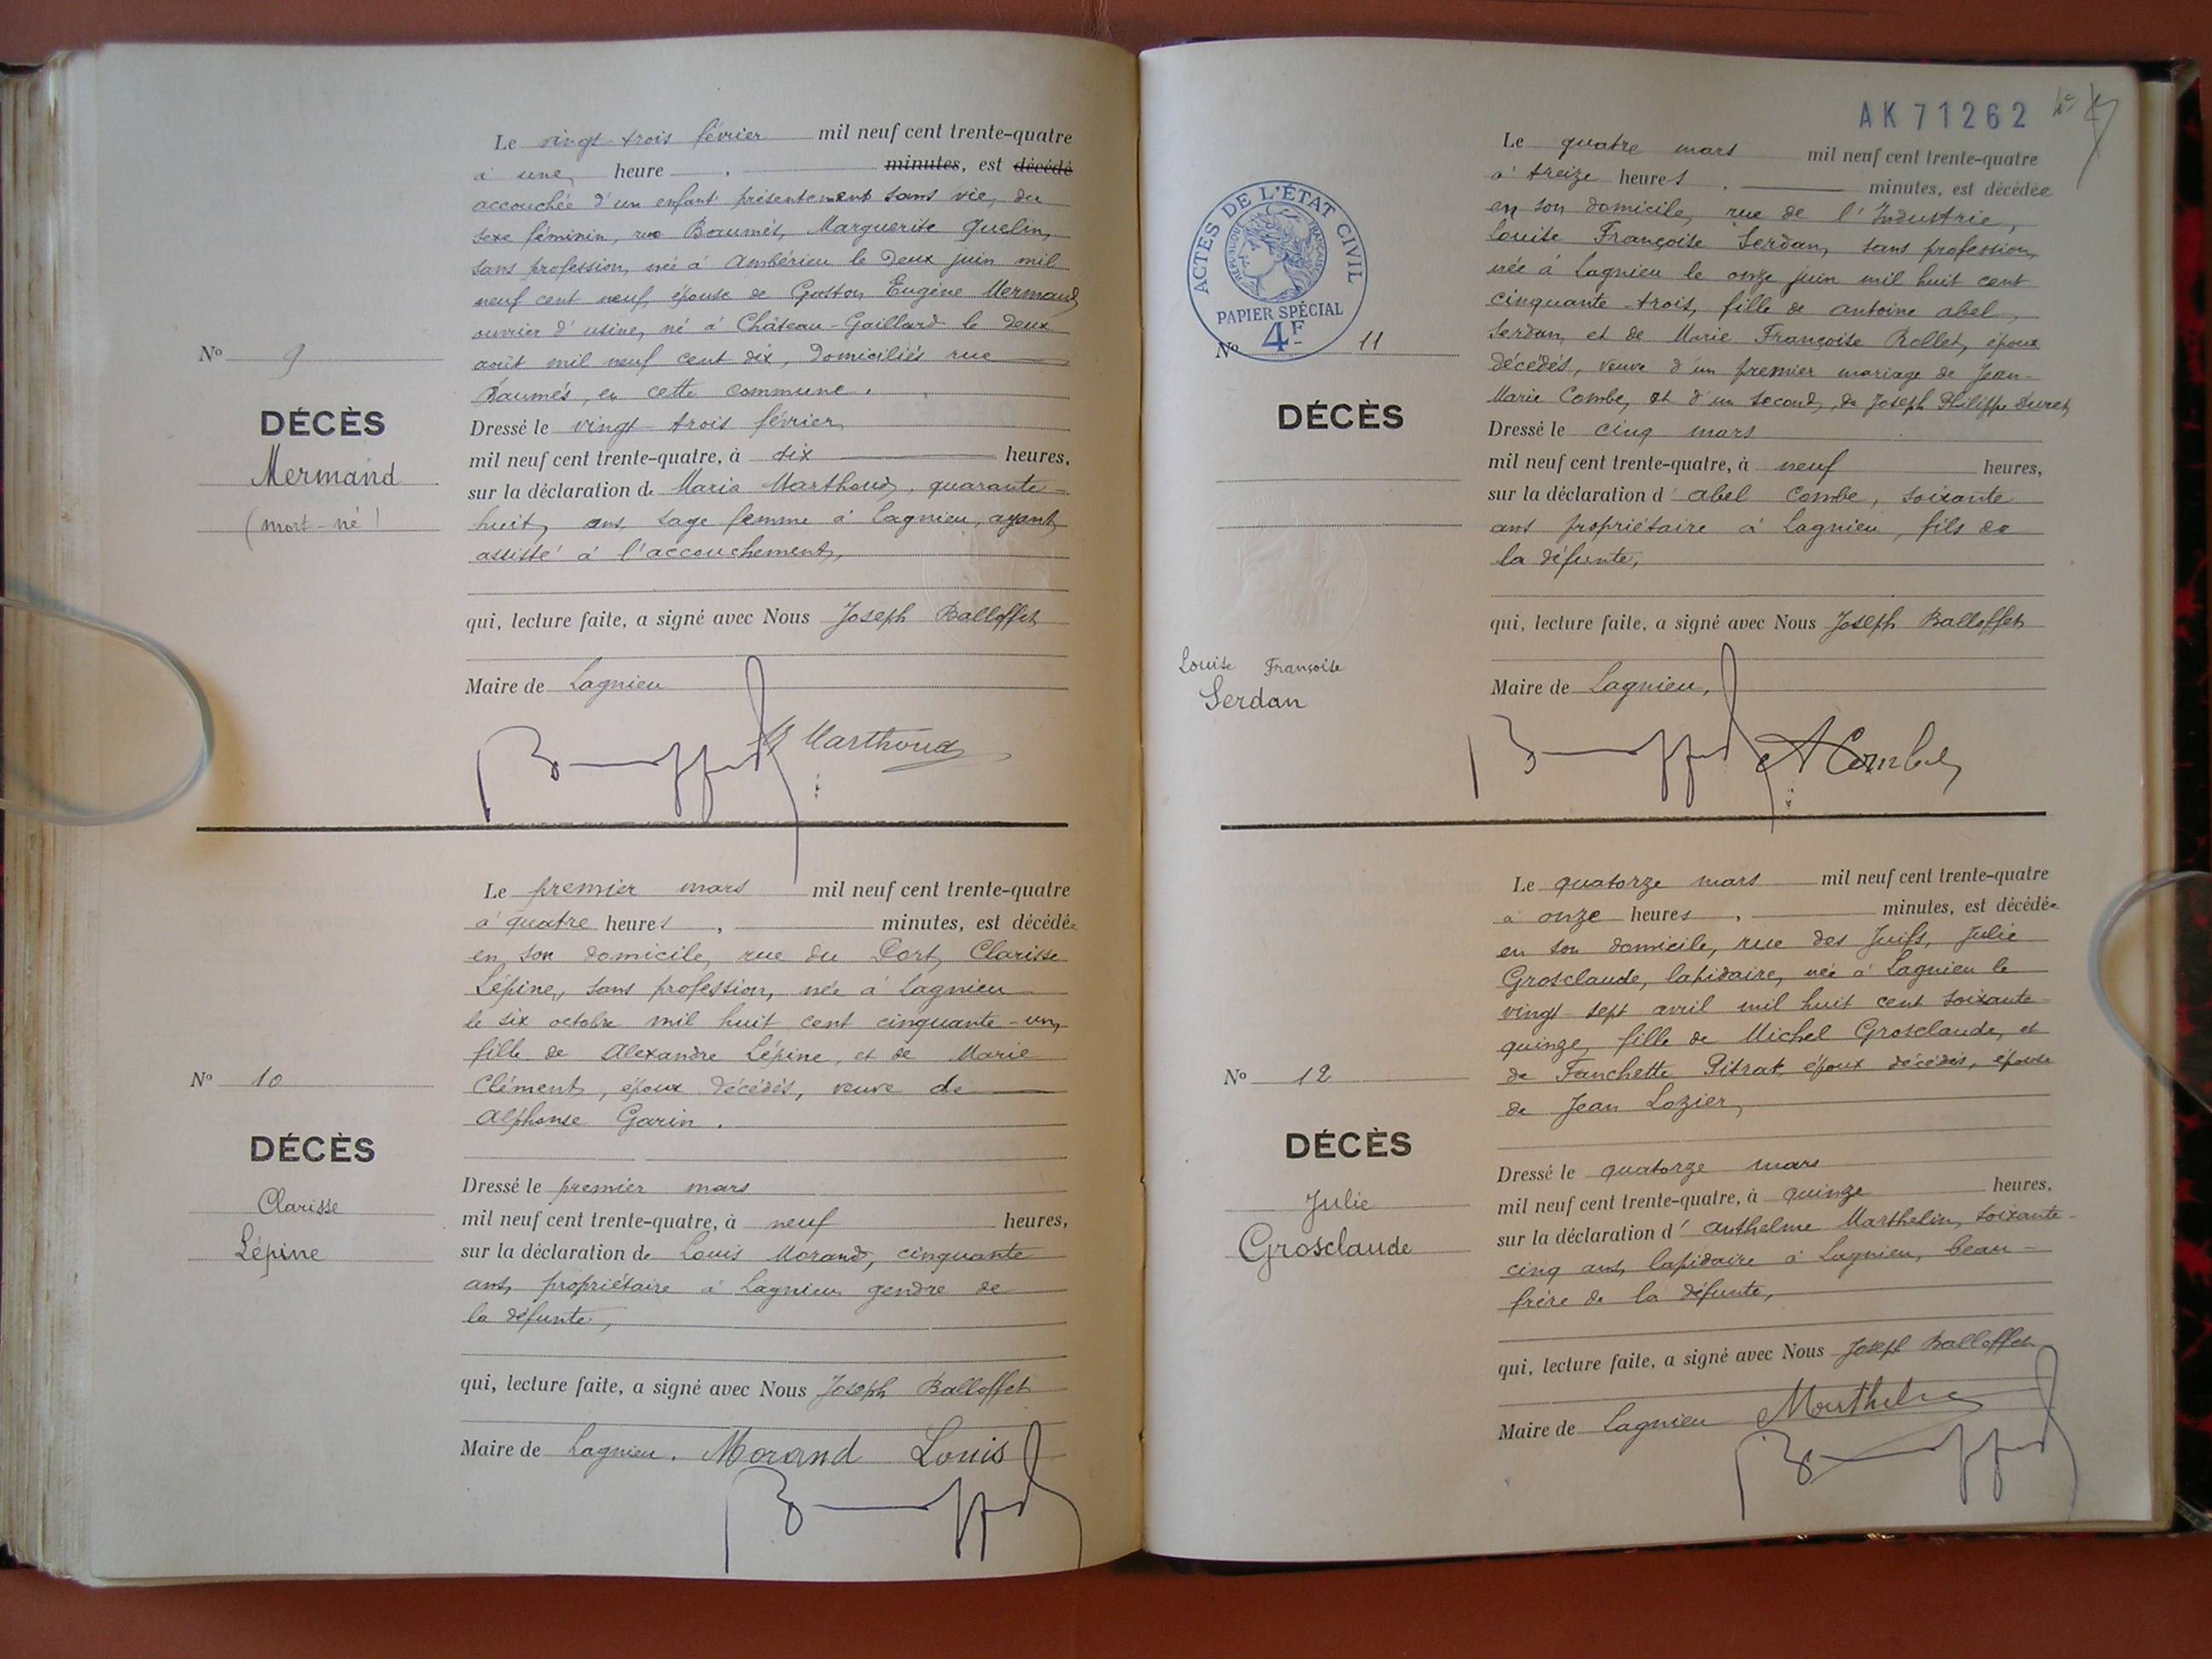 Le vingt-trois février mil neuf cent trente-quatre
à une heure , minutes, est décédé
accouchée d'un enfant présentement sans vie, du
sexe féminin, rue Baumés, Marguerite Quelin,
sans profession, née à Ambérieu le deux juin mil
neuf cent neuf, épouse de Gaston Eugène Mermand
ouvrier d'usine, né à Château-Gaillard le deux
août mil neuf cent dix, domiciliés rue
Baumés, en cette commune.
N° 9
DÉCÈS
Mermand
(mort-né)
Dressé le vingt-trois février,
mil neuf cent trente-quatre, à dix heures,
sur la déclaration de Maria Marthoud, quarante-
huit, ans sage femme à Lagnieu, ayant
assisté à l'accouchement,
qui, lecture faite, a signé avec Nous Joseph Balloffet
Maire de Lagnieu
M Marthoud
Le premier mars mil neuf cent trente-quatre
à quatre heures , minutes, est décédée
en son domicile, rue du Port, Clarisse
Lépine, sans profession, née à Lagnieu
le six octobre mil huit cent cinquante-un,
fille de Alexandre Lépine, et de Marie
Clément, époux décédés, veuve de
Alphonse Garin.
N° 10
DÉCÈS
Clarisse
Lépine
Dressé le premier mars
mil neuf cent trente-quatre, à neuf heures,
sur la déclaration de Louis Morand, cinquante
ans, propriétaire à Lagnieu gendre de
la défunte,
qui, lecture faite, a signé avec Nous Joseph Balloffet
Maire de Lagnieu. Morand Louis
AK 71262
Le quatre mars mil neuf cent trente-quatre
à treize heures , minutes, est décédée
en son domicile, rue de l'Industrie,
Louise Françoise Serdan, sans profession,
née à Lagnieu le onze juin mil huit cent
cinquante-trois, fille de antoine abel,
Serdan, et de Marie Françoise Rollet, époux
décédés, veuve d'un premier mariage de Jean-
Marie Combe, et d'un second, de Joseph Philippe Suret
ACTES DE L'ÉTAT CIVIL
RÉPUBLIQUE FRANÇAISE
PAPIER SPÉCIAL
4F
N° 11
DÉCÈS
Louise Françoise
Serdan
Dressé le cinq mars
mil neuf cent trente-quatre, à neuf heures,
sur la déclaration d'abel Combe, soixante
ans propriétaire à Lagnieu, fils de
la défunte,
qui, lecture faite, a signé avec Nous Joseph Balloffet
Maire de Lagnieu,
A Combe
Le quatorze mars mil neuf cent trente-quatre
à onze heures , minutes, est décédée
en son domicile, rue des Juifs, Julie
Grosclaude, lapidaire, née à Lagnieu le
vingt-sept avril mil huit cent soixante
quinze, fille de Michel Grosclaude, et
de Fanchette Pitrat, époux décédés, épouse
de Jean Lozier,
N° 12
DÉCÈS
Julie
Grosclaude
Dressé le quatorze mars
mil neuf cent trente-quatre, à quinze heures,
sur la déclaration d'anthelme Marthelin, soixante-
cinq ans, lapidaire à Lagnieu, beau-
frère de la défunte,
qui, lecture faite, a signé avec Nous Joseph Balloffet
Maire de Lagnieu Marthelin